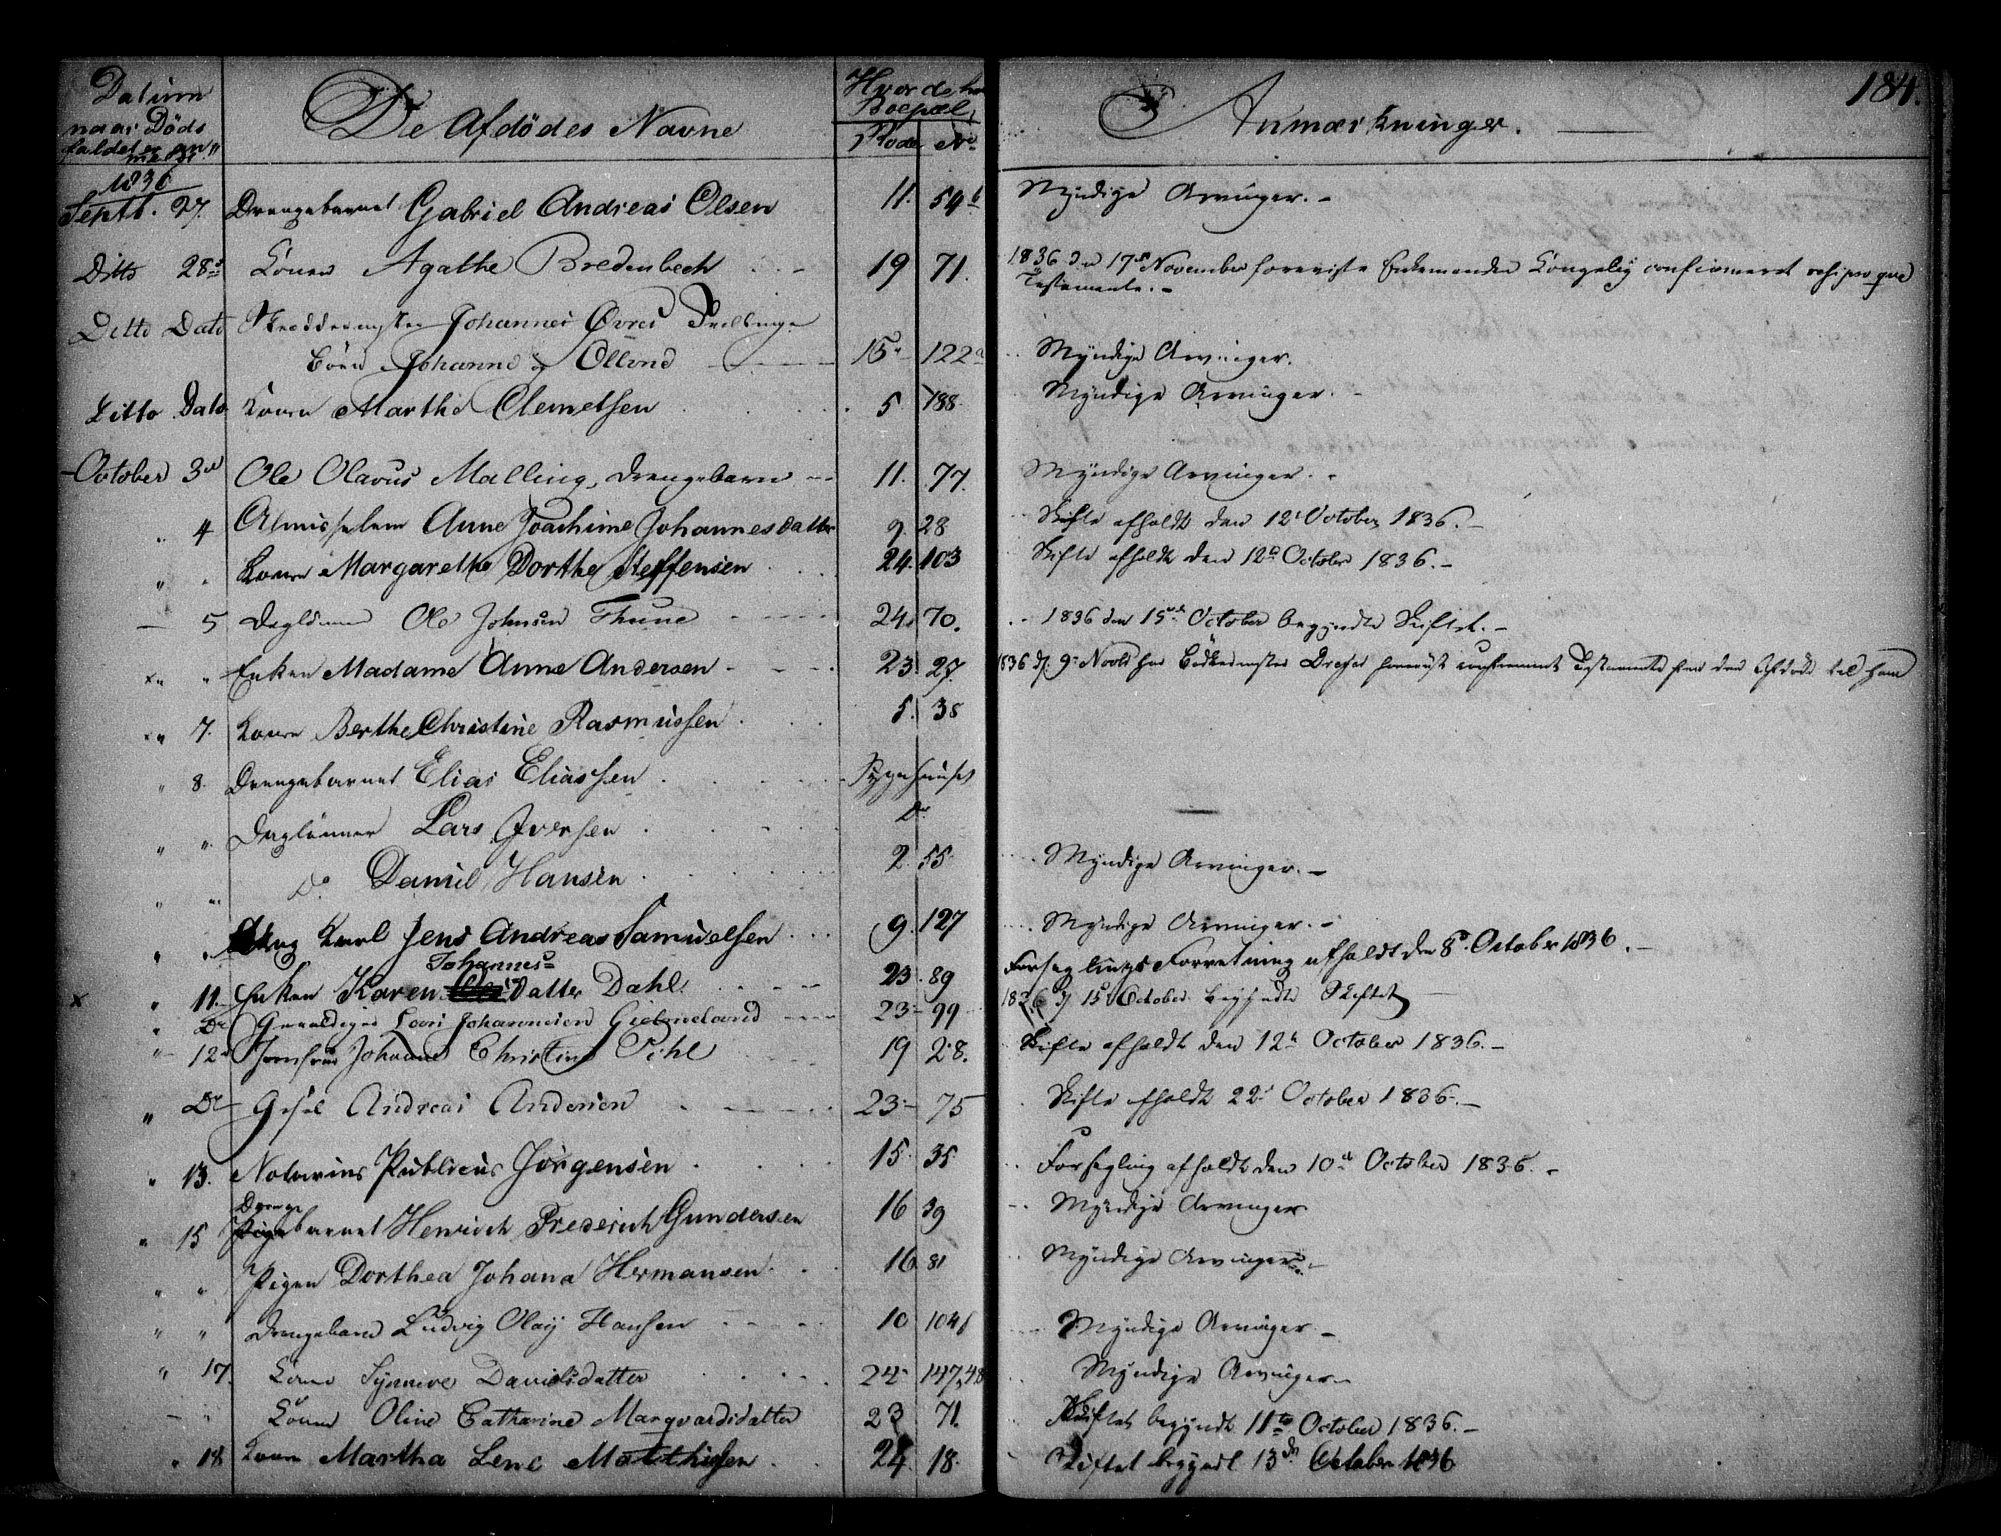 184.
Datum naar Døds faldet er an„ meldt
De Afdødes Navne
Hvor de har Boepæl,
Rode No
Anmærkninger.
1836
Septb. 27. Drengebarnet Gabriel Andreas Olsen 11. 54b Myndige Arvinger. –
Ditto 28de Konen Agathe Bredenbech 19 71. 1836 den 17de November foreviste Enkemanden Kongelig confirmeret reciproque
Testamente. –
Ditto Dato Skreddermester Johannes Øvres Tvillinge
Børn Johanne og Ollene 15. 122a Myndige Arvinger.
Ditto Dato Konen Marthe Clemetsen 5 188. Myndige Arvinger. –
October 3de Ole Olavus Malling, Drengebarn 11. 77. Myndige Arvinger. –
„ 4 Almisselem Anne Joachime Johannesdatter 9. 28 Skifte afholdt den 12te October 1836. –
„ „ Konen Margarethe Dorthe Steffensen 24. 103 Skifte afholdt den 12te October 1836. –
— 5 Daglønner Ole Johnsen Thune 24. 70. 1836 den 15de October begyndte Skiftet. –
„ „ Enken Madame Anne Andersen 23. 27. 1836 d. 9de Novbr har Bødkermester Dreyer foreviist confirmeret Testamente fra den Afdøde til ham
„ 7. Konen Berthe Christine Rasmussen 5. 38
„ 8. Drengebarnet Elias Eliassen Sygehuset
„ „ Daglønner Lars Iversen Do
„ „ Do Daniel Hansen 2. 55. Myndige Arvinger. –
„ „ Ung Karl Jens Andreas Samuelsen 9. 127 Myndige Arvinger. –
Johannes=
„ 11. Enken Karen Datter Dahl 23. 89 Forseglings Forretning afholdt den 8de October 1836. –
„ Do Gevaldiger Lars Johannesen Gielmeland 23 99 1836 d. 15de October begyndte Skiftet
„ 12te Jomfrue Johanne Christine Pihl 19 28. Skifte afholdt den 12te October 1836. –
„ Do Gesel Andreas Andersen 23 75 Skifte afholdt 22de October 1836. –
„ 13. Notarius Publicus Jörgensen 15. 35 Forsegling afholdt den 10de October 1836. –
Drenge
„ 15 Pigebarnet Henrich Frederich Gundersen 16 39 Myndige Arvinger
„ „ Pigen Dorthea Johana Hermansen 16 81 Myndige Arvinger. –
„ „ Drengebarn Ludvig Olaij Hansen 10 104b Myndige Arvinger –
„ 17. Konen Synneve Davidsdatter 24 147,48 Myndige Arvinger. –
„ Konen Oline Catharine Marqvardsdatter 23 71. Skiftet begyndt 11te October 1836. –
„ 18. Konen Martha Lene Matthissen 24 18. Skiftet begyndt 13de October 1836